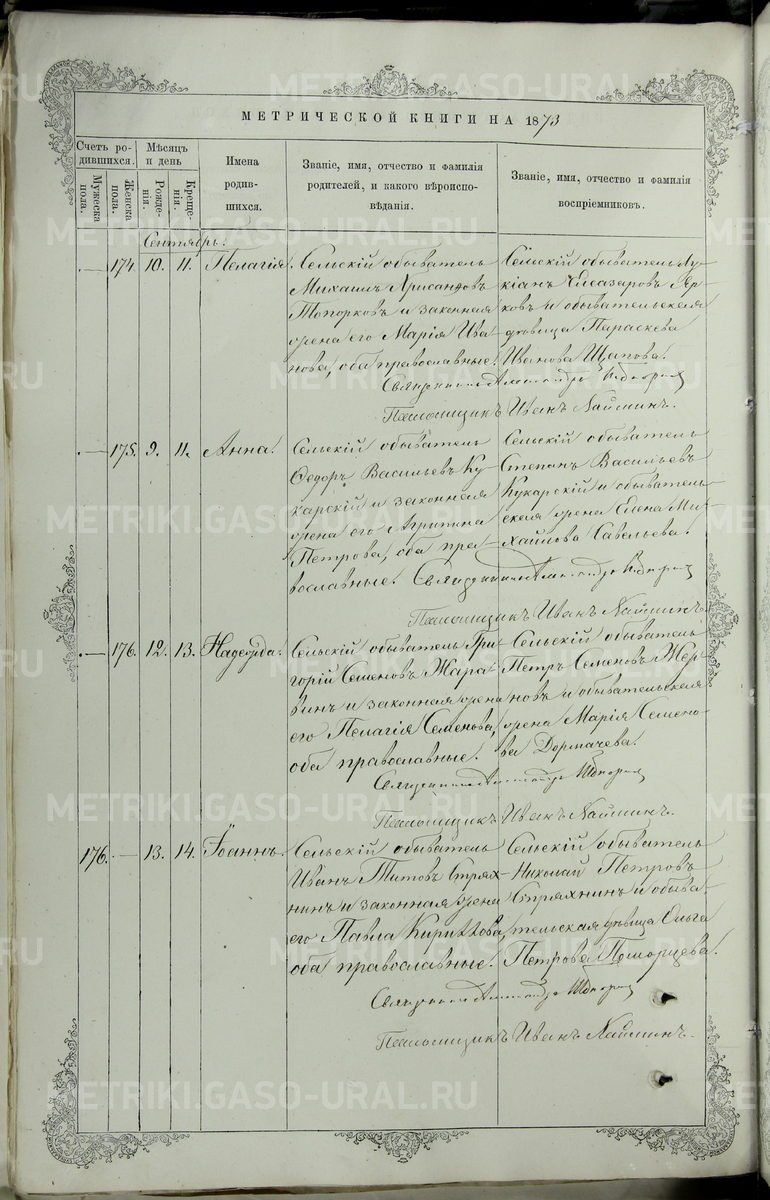 МЕТРИЧЕСКОЙ КНИГИ НА 1873
Счетъ родившихся.
Мужеска пола.
Женска пола.
Мѣсяцъ и день
Рожденія.
Крещенія.
Имена родившихся.
Званіе, имя, отчество и фамилія родителей, и какого вѣроисповѣданія.
Званіе, имя, отчество и фамилія воспріемниковъ.
Сентябрь.
— 174. 10. 11. Пелагія.
Сельскій обыватель
Михаилъ
Топорковъ и законная
жена его Марія Ива-
нова, оба православные.
Сельскій обыватель Лу-
кіанъ Елеазаровъ
ковъ и обывательская
дѣвица Параскева
Иванова Щапова.
Священникъ
Псаломщикъ Иванъ Наймушинъ.
— 175. 9. 11. Анна.
Сельскій обыватель
Ѳедоръ Васильевъ Ку-
карскій и законная
жена его Агрипина
Петрова, оба пра-
вославные.
Сельскій обыватель
Степанъ Васильевъ
Кукарскій и обыватель-
ская жена Елена Ми-
хайлова Савельева.
Священникъ
Псаломщикъ Иванъ
— 176. 12. 13. Надежда.
Сельскій обыватель Гри-
горій Семеновъ Жара-
винъ и законная жена
его Пелагія Семенова,
оба православные.
Сельскій обыватель
Петръ Семеновъ
новъ и обывательская
жена Марія Семено-
ва Дорпачева.
Священникъ
Псаломщикъ Иванъ
176. — 13. 14. Іоаннъ.
Сельскій обыватель
Иванъ Титовъ Стрях-
нинъ и законная жена
его Павла Кириллова,
оба православные.
Сельскій обыватель
Николай Петровъ
Стряхнинъ и обыва-
тельская дѣвица Ольга
Петрова Поморцева.
Священникъ
Псаломщикъ Иванъ
METRIKI.GASO-URAL.RU